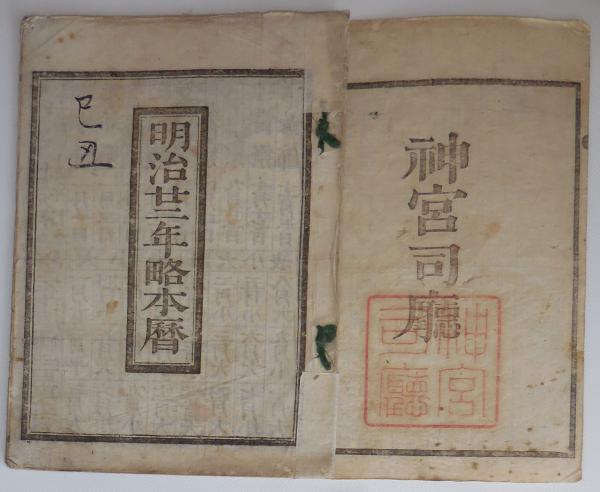 神宮司廳
神宮
司廳
明治廿二年略本暦
己丑